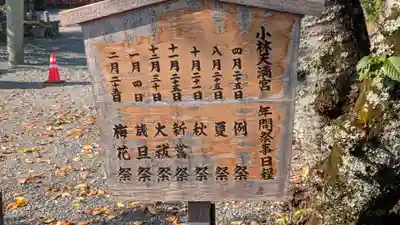 小林天満宮　年間祭事日程
四月二十五日　例祭
八月二十五日　夏祭
十月二十一日　秋祭
十一月二十五日　新嘗祭
十二月三十日　大祓祭
一月一日　歳旦祭
二月二十五日　梅花祭